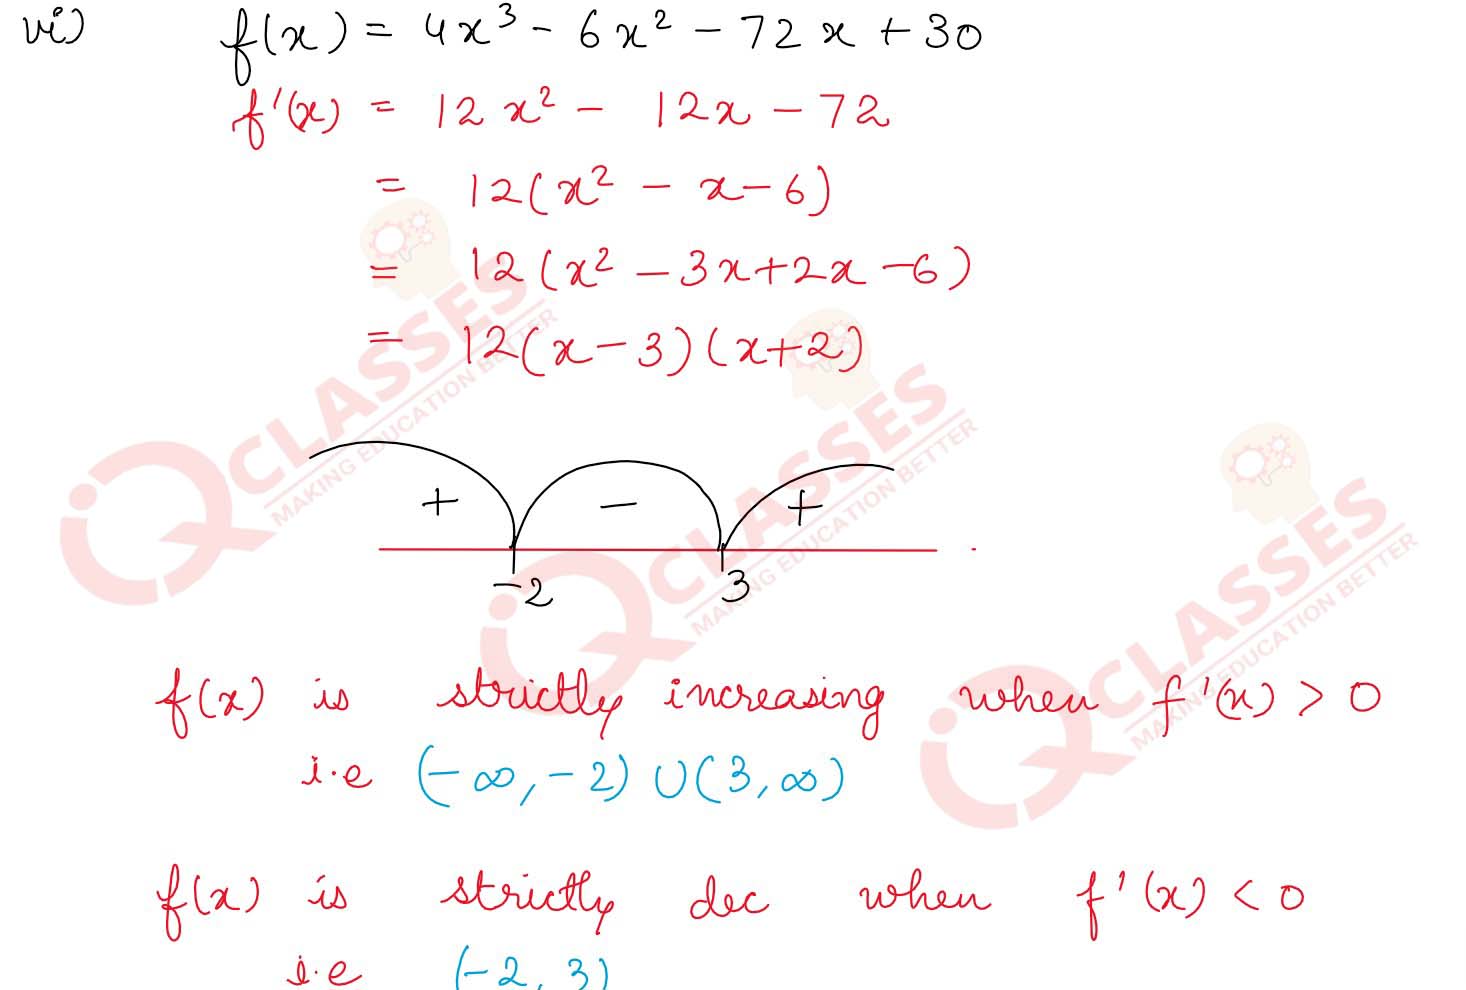 vi) f(x) = 4x³ - 6x² - 72x + 30
f'(x) = 12x² - 12x - 72
= 12(x² - x - 6)
= 12(x² - 3x + 2x - 6)
= 12(x - 3)(x + 2)
+ - +
-2 3
f(x) is strictly increasing when f'(x) > 0
i.e (-∞, -2) ∪ (3, ∞)
f(x) is strictly dec when f'(x) < 0
i.e (-2, 3)
iQ CLASSES
MAKING EDUCATION BETTER
iQ CLASSES
MAKING EDUCATION BETTER
iQ CLASSES
MAKING EDUCATION BETTER